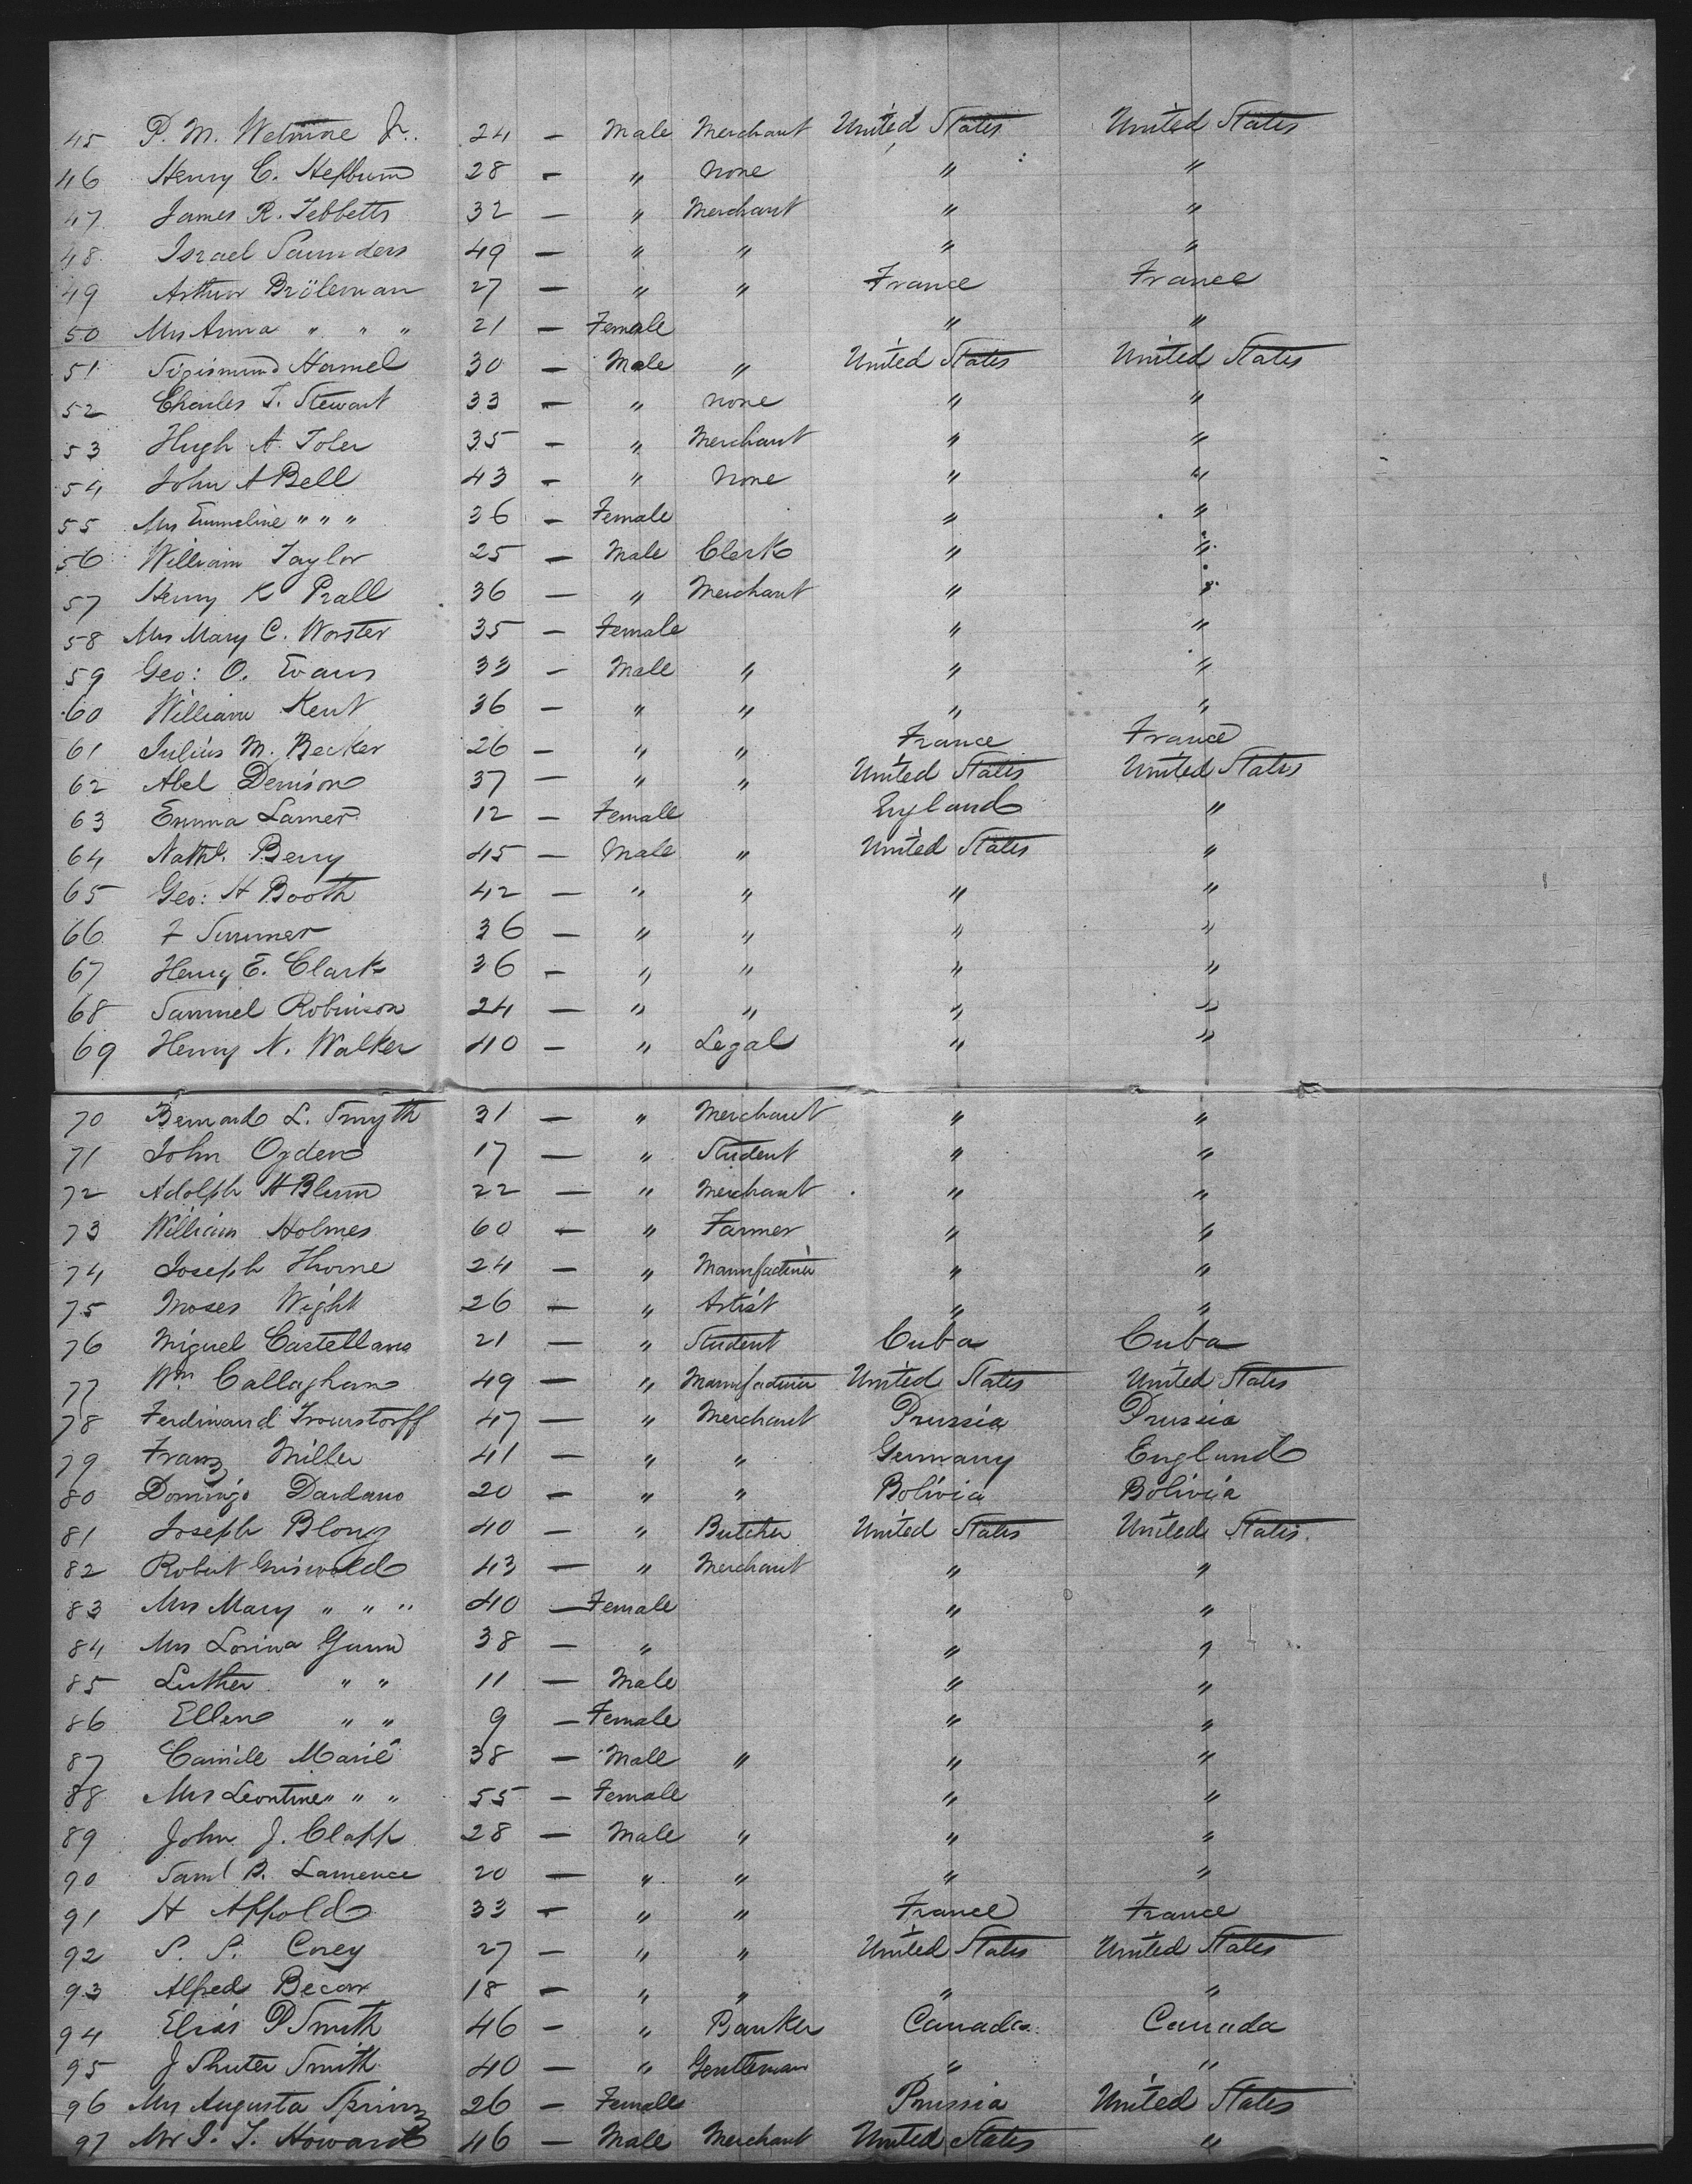 45 P. M. Wetmore Jr. 24 — Male Merchant United States United States
46 Henry C. Hepburn 28 — " None " "
47 James R. Tebbetts 32 — " Merchant " "
48 Israel Saunders 49 — " " " "
49 Arthur Bröleman 27 — " " France France
50 Mrs Anna " " " 21 — Female " "
51 Sigismund Hamel 30 — Male " United States United States
52 Charles T. Stewart 33 — " None " "
53 Hugh A Toler 35 — " Merchant " "
54 John A Bell 43 — " None " "
55 Mrs Emmeline " " " 36 — Female " "
56 William Taylor 25 — Male Clerk " "
57 Henry K Prall 36 — " Merchant " "
58 Mrs Mary C. Worster 35 — Female " "
59 Geo: O. Evans 33 — Male " " "
60 William Kent 36 — " " " "
61 Julius M. Becker 26 — " " France France
62 Abel Denison 37 — " " United States United States
63 Emma 12 — Female England "
64 Nathl. Berry 45 — Male " United States "
65 Geo: H Booth 42 — " " " "
66 36 — " " " "
67 Henry E. Clark 36 — " " " "
68 Samuel Robinson 24 — " " " "
69 Henry N. Walker 40 — " Legal " "
70 Bernard L. Smyth 31 — " Merchant " "
71 John Ogden 17 — " Student " "
72 Adolph H Blum 22 — " Merchant " "
73 William Holmes 60 — " Farmer " "
74 Joseph Horne 24 — " Manufacturer " "
75 Moses Wight 26 — " Artist " "
76 Miguel Castellano 21 — " Student Cuba Cuba
77 Wm Callaghan 49 — " Manufacturer United States United States
78 Ferdinand 47 — " Merchant Prussia Prussia
79 Franz Miller 41 — " " Germany England
80 Domingo Dardano 20 — " " Bolivia Bolivia
81 Joseph Blong 40 — " Butcher United States United States
82 Robert Griswold 43 — " Merchant " "
83 Mrs Mary " " " 40 — Female " "
84 Mrs Lorina Gunn 38 — " " "
85 Luther " " 11 — Male " "
86 Ellen " " 9 — Female " "
87 Camile Marié 38 — Male " " "
88 Mrs Leontine " " " 55 — Female " "
89 John J. Clapp 28 — Male " " "
90 Saml B. Lawrence 20 — " " " "
91 H Appold 33 — " " France France
92 S. S. Corey 27 — " " United States United States
93 Alfred Becar 18 — " " " "
94 Elias P Smith 46 — " Banker Canada Canada
95 J Shuter Smith 40 — " Gentleman " "
96 Mrs Augusta Sprinz 26 — Female Prussia United States
97 Mr J. T. Howard 46 — Male Merchant United States "